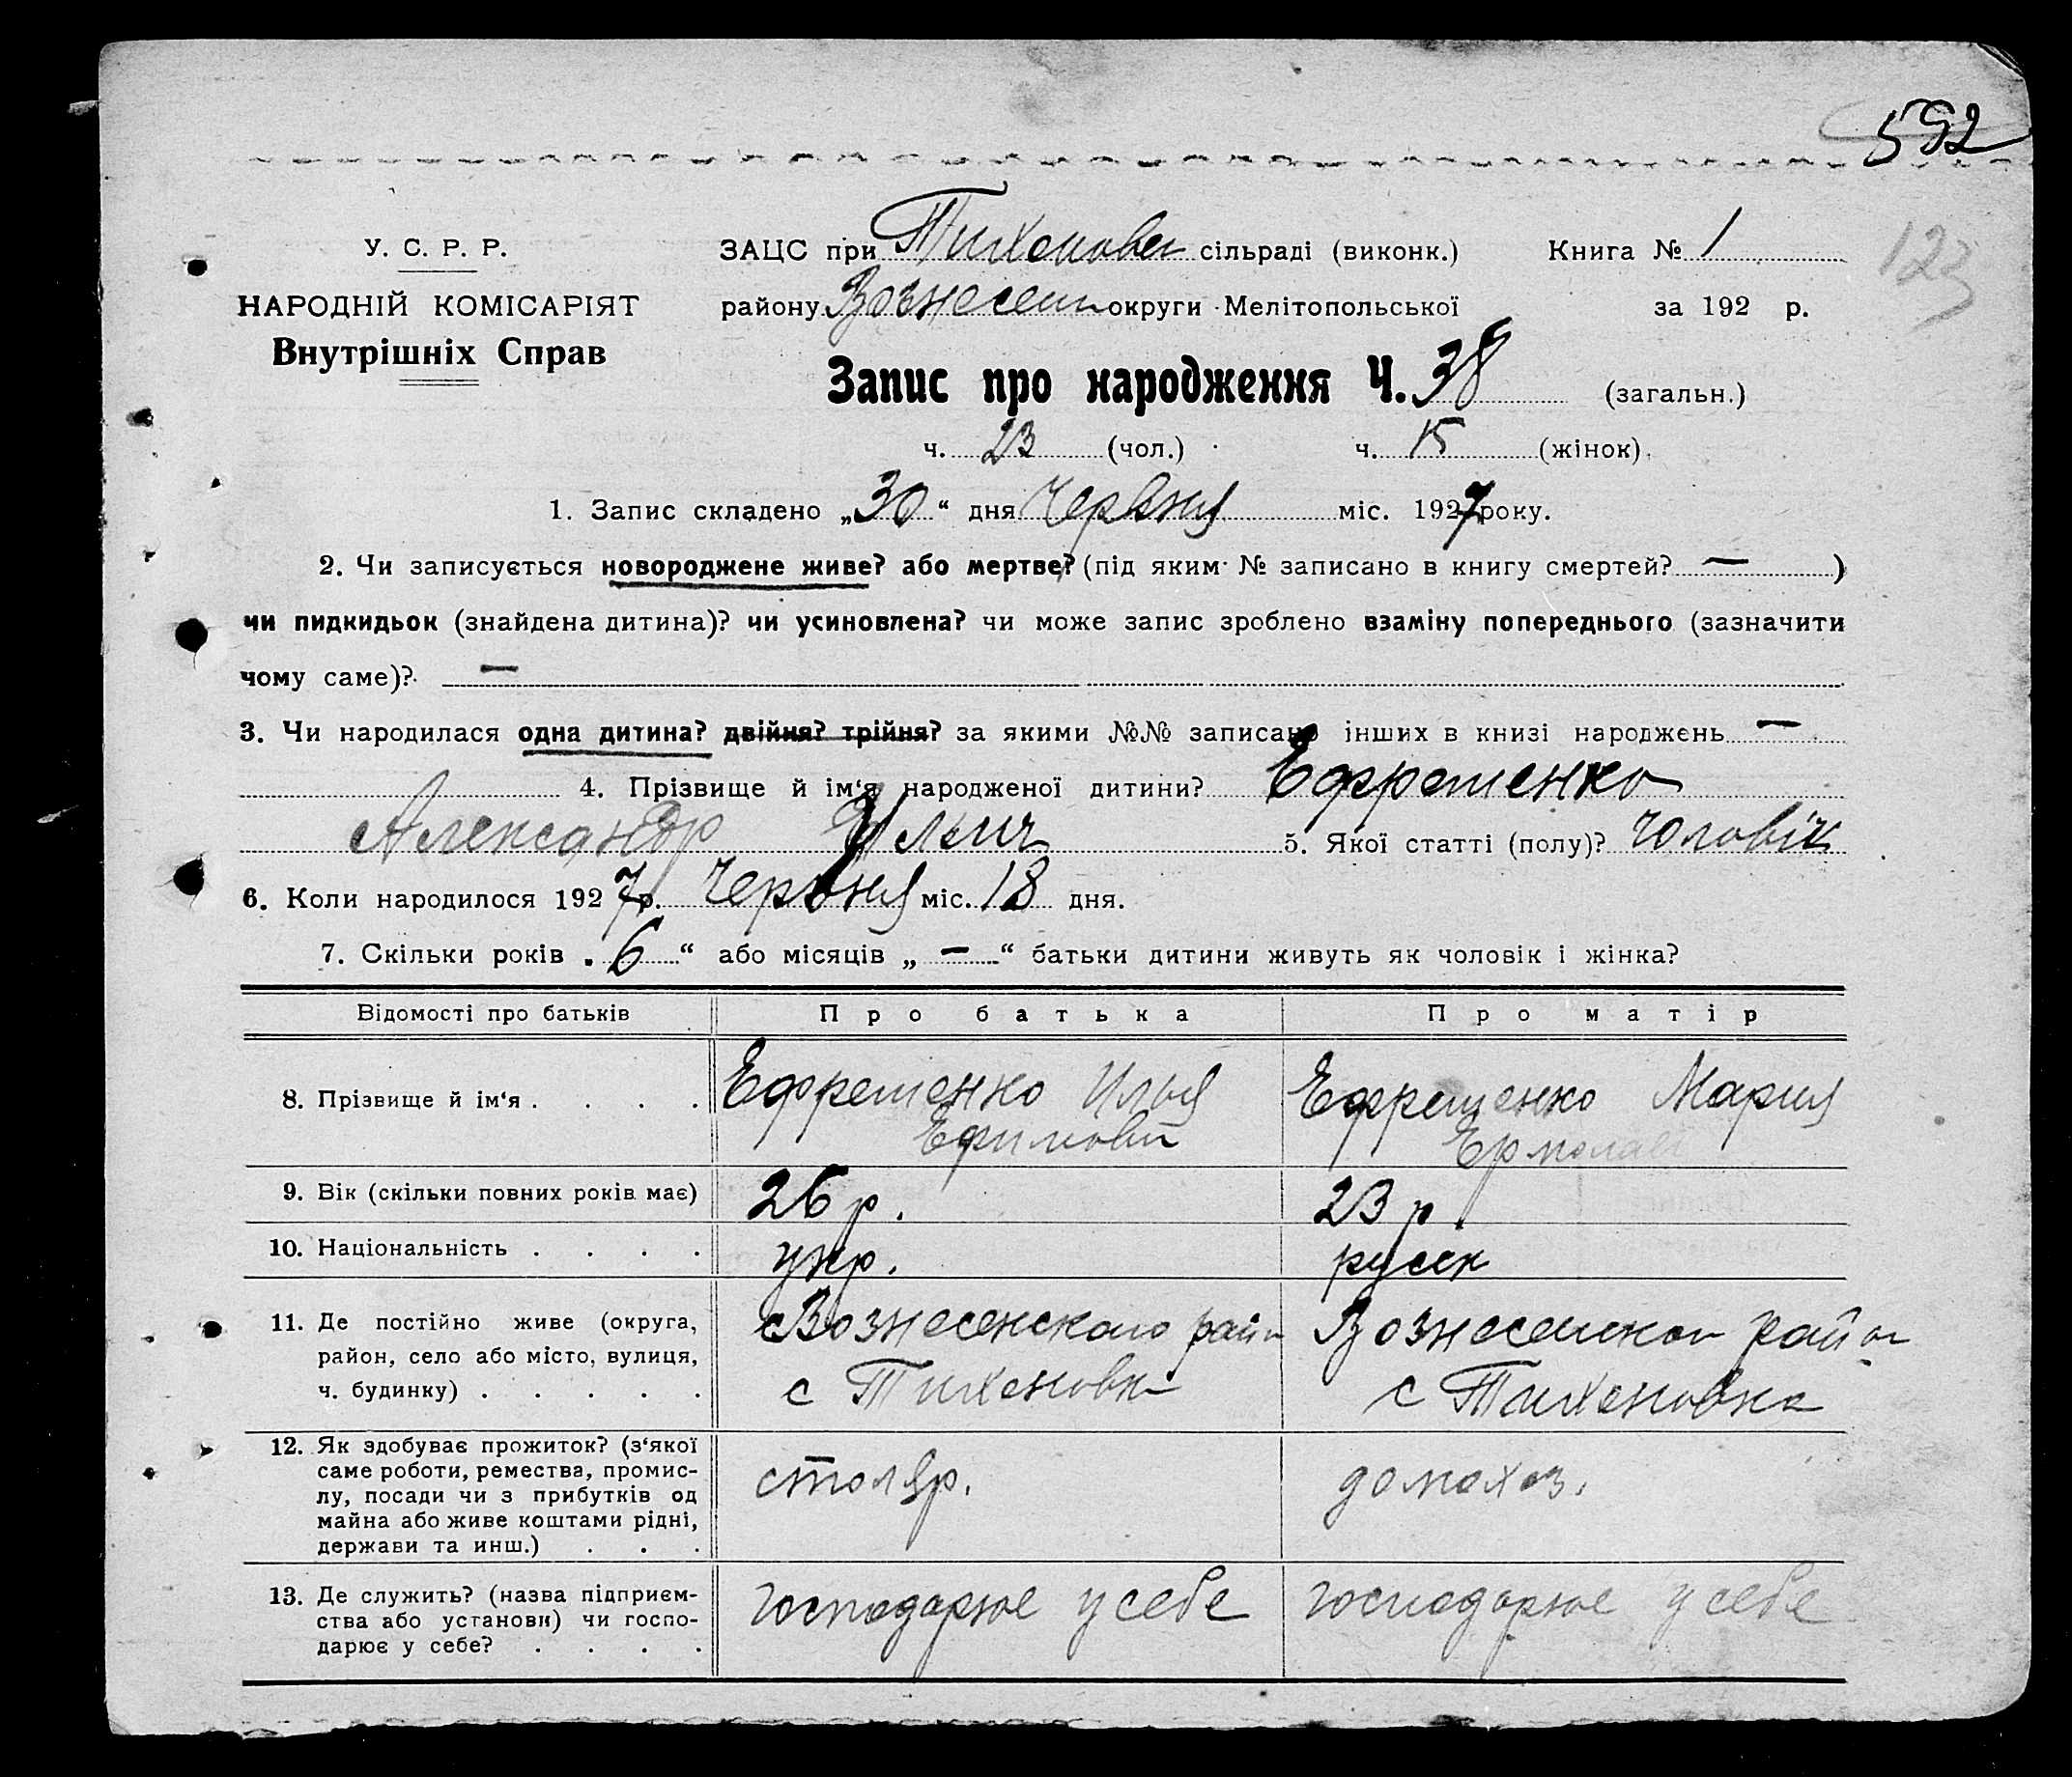 592
У. С. Р. Р. ЗАЦС при Тихонова сільраді (виконк.) Книга № 1 123
НАРОДНІЙ КОМІСАРІЯТ району Вознесен округи Мелітопольської за 192 р.
Внутрішніх Справ
Запис про народження Ч. 38 (загальн.)
ч. 23 (чол.) ч. 15 (жінок).
1. Запис складено „30“ дня Червня міс. 1927 року.
2. Чи записується новороджене живе? або мертве? (під яким № записано в книгу смертей? — )
чи пидкидьок (знайдена дитина)? чи усиновлена? чи може запис зроблено взаміну попереднього (зазначити
чому саме)? —
3. Чи народилася одна дитина? двійня? трійня? за якими №№ записано інших в книзі народжень —
4. Прізвище й ім‘я народженої дитини? Ефременко
Александр Ильич 5. Якої статті (полу)? Чоловік
6. Коли народилося 1927 р. Червня міс. 18 дня.
7. Скільки років „6“ або місяців „—“ батьки дитини живуть як чоловік і жінка?
Відомості про батьків Про батька Про матір
8. Прізвище й ім‘я . . . . Ефременко Илья Ефременко Мария
Ефимович Ермолав
9. Вік (скільки повних років має) 26 р. 23 р.
10. Національність . . . . укр. русск
11. Де постійно живе (округа, с Вознесенского район Вознесенког район
район, село або місто, вулиця,
ч. будинку) . . . . . с Тихоновка с Тихоновка
12. Як здобуває прожиток? (з‘якої
саме роботи, ремества, промис- столяр. домохоз.
лу, посади чи з прибутків од
майна або живе коштами рідні,
держави та инш.) . . .
13. Де служить? (назва підприєм- господарює у себе господарює у себе
ства або установи) чи госпо-
дарює у себе? . . . .